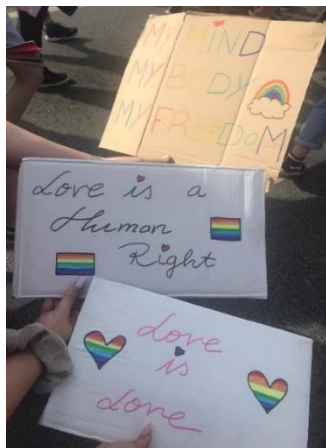 MY MIND
MY BODY
MY FREEDOM
Love is a
Human
Right
Love
is
Love